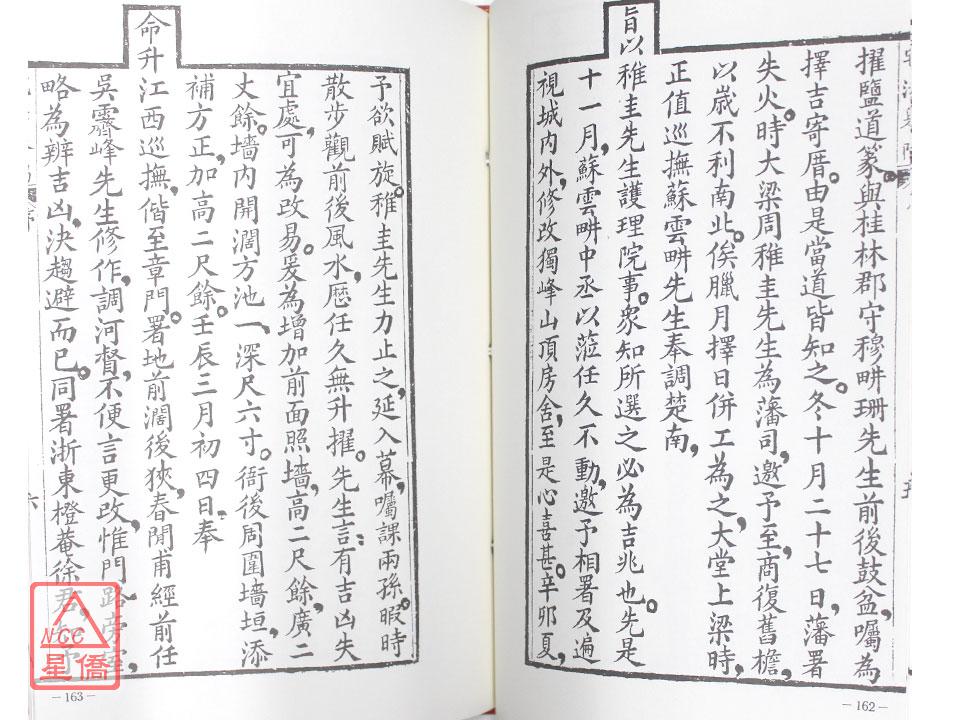 擢鹽道篆。與桂林郡守穆畊珊先生前後鼓盆，囑為
擇吉寄厝。由是當道皆知之。冬十月二十七日，藩署
失火。時大梁周稚圭先生為藩司，邀予至，商復舊檐，
以歲不利南北。俟臘月擇日併工為之，大堂上梁時，
正值巡撫蘇雲畊先生奉調楚南，
旨以
稚圭先生護理院事。眾知所選之必為吉兆也。先是
十一月，蘇雲畊中丞以蒞任久不動，邀予相署及遍
視城內外，修改獨峰山頂房舍，至是心喜甚。辛卯夏，
予欲賦旋。稚圭先生力止之，延入幕，囑課兩孫，暇時
散步觀前後風水，歷任久無升擢。先生言：有吉凶失
宜處，可為改易。爰為增加前面照墻，高二尺餘，廣二
丈餘。墻內開濶方池一，深尺六寸。衙後周圍墻垣，添
補方正，加高二尺餘。壬辰三月初四日，奉
命升
江西巡撫，偕至章門。署地前濶後狹，春閒甫經前任
吳霽峰先生修作，調河督，不便言更改，惟門路旁
略為辨吉凶，決趨避而已。同署浙東橙菴徐君
六
NCC
星僑
－163－
－162－